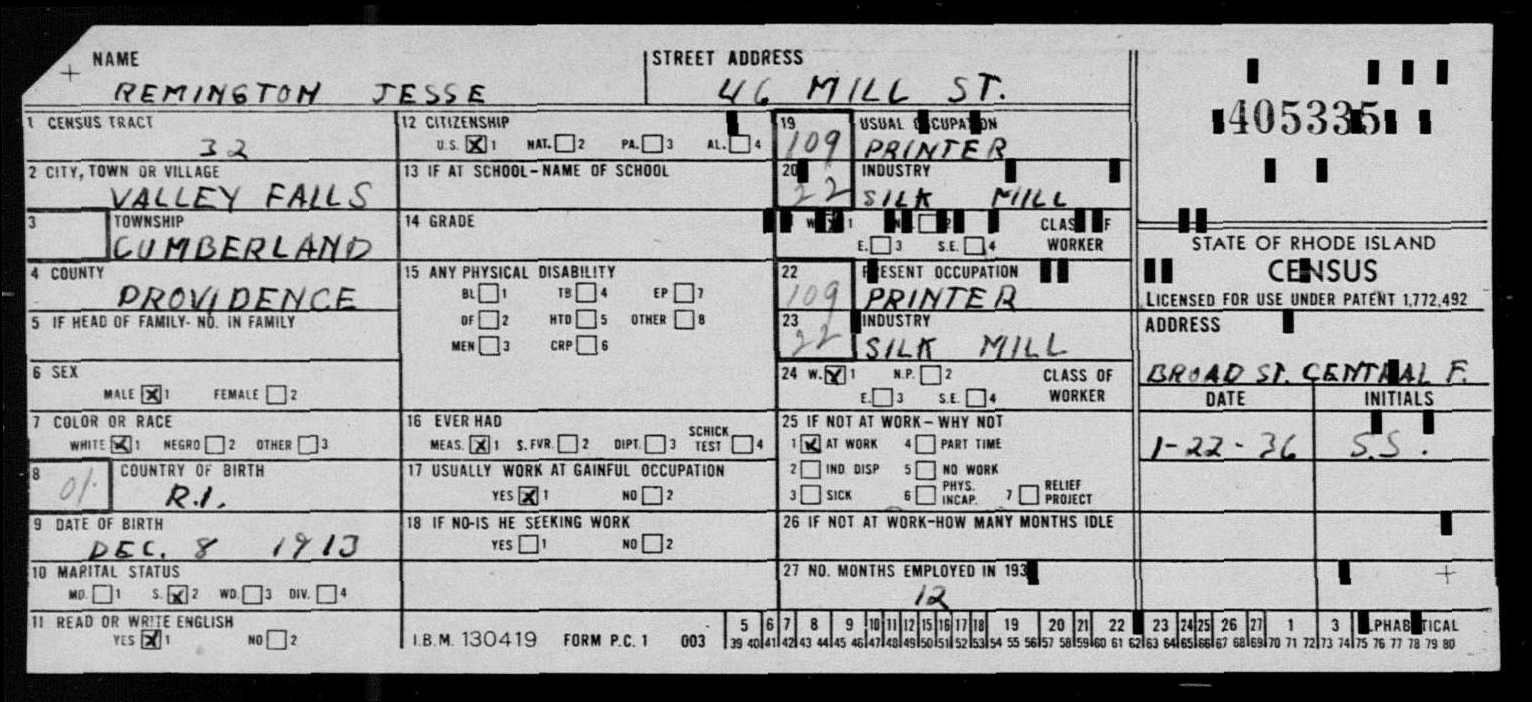 NAME
REMINGTON JESSE
STREET ADDRESS
46 MILL ST.
1 CENSUS TRACT
32
2 CITY, TOWN OR VILLAGE
VALLEY FALLS
3 TOWNSHIP
CUMBERLAND
4 COUNTY
PROVIDENCE
5 IF HEAD OF FAMILY- NO. IN FAMILY
6 SEX
MALE X 1 FEMALE 2
7 COLOR OR RACE
WHITE X 1 NEGRO 2 OTHER 3
8 COUNTRY OF BIRTH
01 R.I.
9 DATE OF BIRTH
DEC. 8 1913
10 MARITAL STATUS
MD. 1 S. X 2 WD. 3 DIV. 4
11 READ OR WRITE ENGLISH
YES X 1 NO 2
12 CITIZENSHIP
U.S. X 1 NAT. 2 PA. 3 AL. 4
13 IF AT SCHOOL-NAME OF SCHOOL
14 GRADE
15 ANY PHYSICAL DISABILITY
BL 1 TB 4 EP 7
DF 2 HTD 5 OTHER 8
MEN 3 CRP 6
16 EVER HAD
MEAS. X 1 S.FVR. 2 DIPT. 3 SCHICK TEST 4
17 USUALLY WORK AT GAINFUL OCCUPATION
YES X 1 NO 2
18 IF NO-IS HE SEEKING WORK
YES 1 NO 2
I.B.M. 130419 FORM P.C. 1 003
19 USUAL OCCUPATION
109 PRINTER
20 INDUSTRY
22 SILK MILL
W. X 1 2 CLASS OF
E. 3 S.E. 4 WORKER
22 PRESENT OCCUPATION
109 PRINTER
23 INDUSTRY
22 SILK MILL
24 W. X 1 N.P. 2 CLASS OF
E. 3 S.E. 4 WORKER
25 IF NOT AT WORK-WHY NOT
1 X AT WORK 4 PART TIME
2 IND DISP 5 NO WORK
3 SICK 6 PHYS. INCAP. 7 RELIEF PROJECT
26 IF NOT AT WORK-HOW MANY MONTHS IDLE
27 NO. MONTHS EMPLOYED IN 193
12
5 6 7 8 9 10 11 12 15 16 17 18 19 20 21 22 23 24 25 26 27 1 3 ALPHABETICAL
39 40 41 42 43 44 45 46 47 48 49 50 51 52 53 54 55 56 57 58 59 60 61 62 63 64 65 66 67 68 69 70 71 72 73 74 75 76 77 78 79 80
405335
STATE OF RHODE ISLAND
CENSUS
LICENSED FOR USE UNDER PATENT 1,772,492
ADDRESS
BROAD ST. CENTRAL F.
DATE INITIALS
1-22-36 S.S.